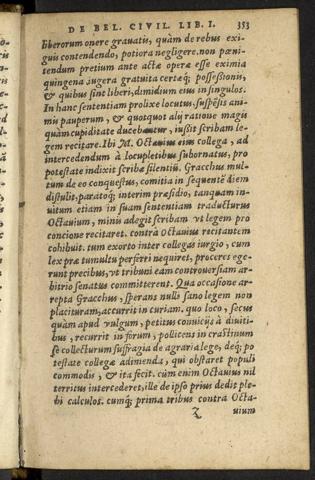 DE BEL. CIVIL. LIB. I. 353
liberorum onere grauatis, quàm de rebus exi-
guis contendendo, potiora negligere. non pœni-
tendum pretium ante actæ operæ esse eximia
quingena iugera gratuita certaq́; possessionis,
& quibus sint liberi, dimidium eius in singulos.
In hanc sententiam prolixe locutus, suspēsis ani-
mis pauperum, & quotquot alij ratione magis
quàm cupiditate ducebantur, iussit scribam le-
gem recitare. Ibi M. Octauius eius collega, ad
intercedendum à locupletibus subornatus, pro
potestate indixit scribæ silentiū. Gracchus mul-
tum de eo conquestus, comitia in sequentē diem
distulit, paratoq́; interim præsidio, tanquam in-
uitum etiam in suam sententiam traducturus
Octauium, minis adegit scribam vt legem pro
concione recitaret. contrà Octauius recitantem
cohibuit. tum exorto inter collegas iurgio, cum
lex præ tumultu perferri nequiret, proceres ege-
runt precibus, vt tribuni eam controuersiam ar-
bitrio senatus committerent. Qua occasione ar-
repta Gracchus, sperans nulli sano legem non
placituram, accurrit in curiam. quo loco, secus
quàm apud vulgum, petitus conuicijs à diuiti-
bus, recurrit in forum, pollicens in crastinum
se collecturum suffragia de agraria lege, deq́; po
testate collegæ adimenda, qui obstaret populi
commodis, & ita fecit. cùm enim Octauius nil
territus intercederet, ille de ipso prius dedit ple-
bi calculos. cumq́; prima tribus contra Octa-
Z uium